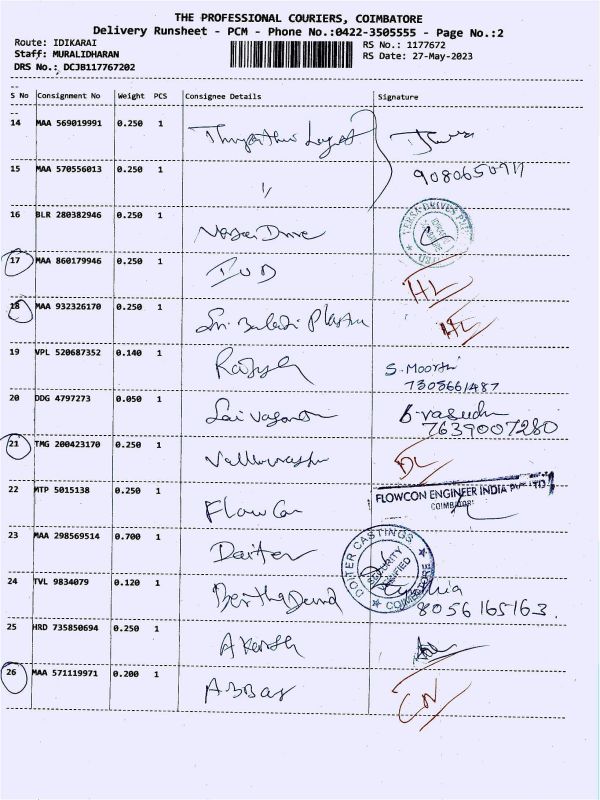 THE PROFESSIONAL COURIERS, COIMBATORE
Delivery Runsheet - PCM - Phone No.:0422-3505555 - Page No.:2
Route: IDIKARAI
RS No.: 1177672
Staff: MURALIDHARAN
RS Date: 27-May-2023
DRS No.: DCJB117767202
S No Consignment No Weight PCS Consignee Details Signature
14 MAA 569019991 0.250 1
15 MAA 570556013 0.250 1
16 BLR 280382946 0.250 1
17 MAA 860179946 0.250 1 HL
18 MAA 932326170 0.250 1 HL
19 VPL 520687352 0.140 1 S. Moorthi
7305661487
20 DDG 4797273 0.050 1
7639007280
21 TMG 200423170 0.250 1 DL
22 MTP 5015138 0.250 1 Flow Con FLOWCON ENGINEER INDIA PVT LTD
COIMBATORE
23 MAA 298569514 0.700 1 Doiter DOITER CASTINGS
SECURITY
VERIFIED
COIMBATORE
24 TVL 9834079 0.120 1 Bertha David
8056165163.
25 HRD 735850694 0.250 1 Akersh
26 MAA 571119971 0.200 1 ABBAS CN